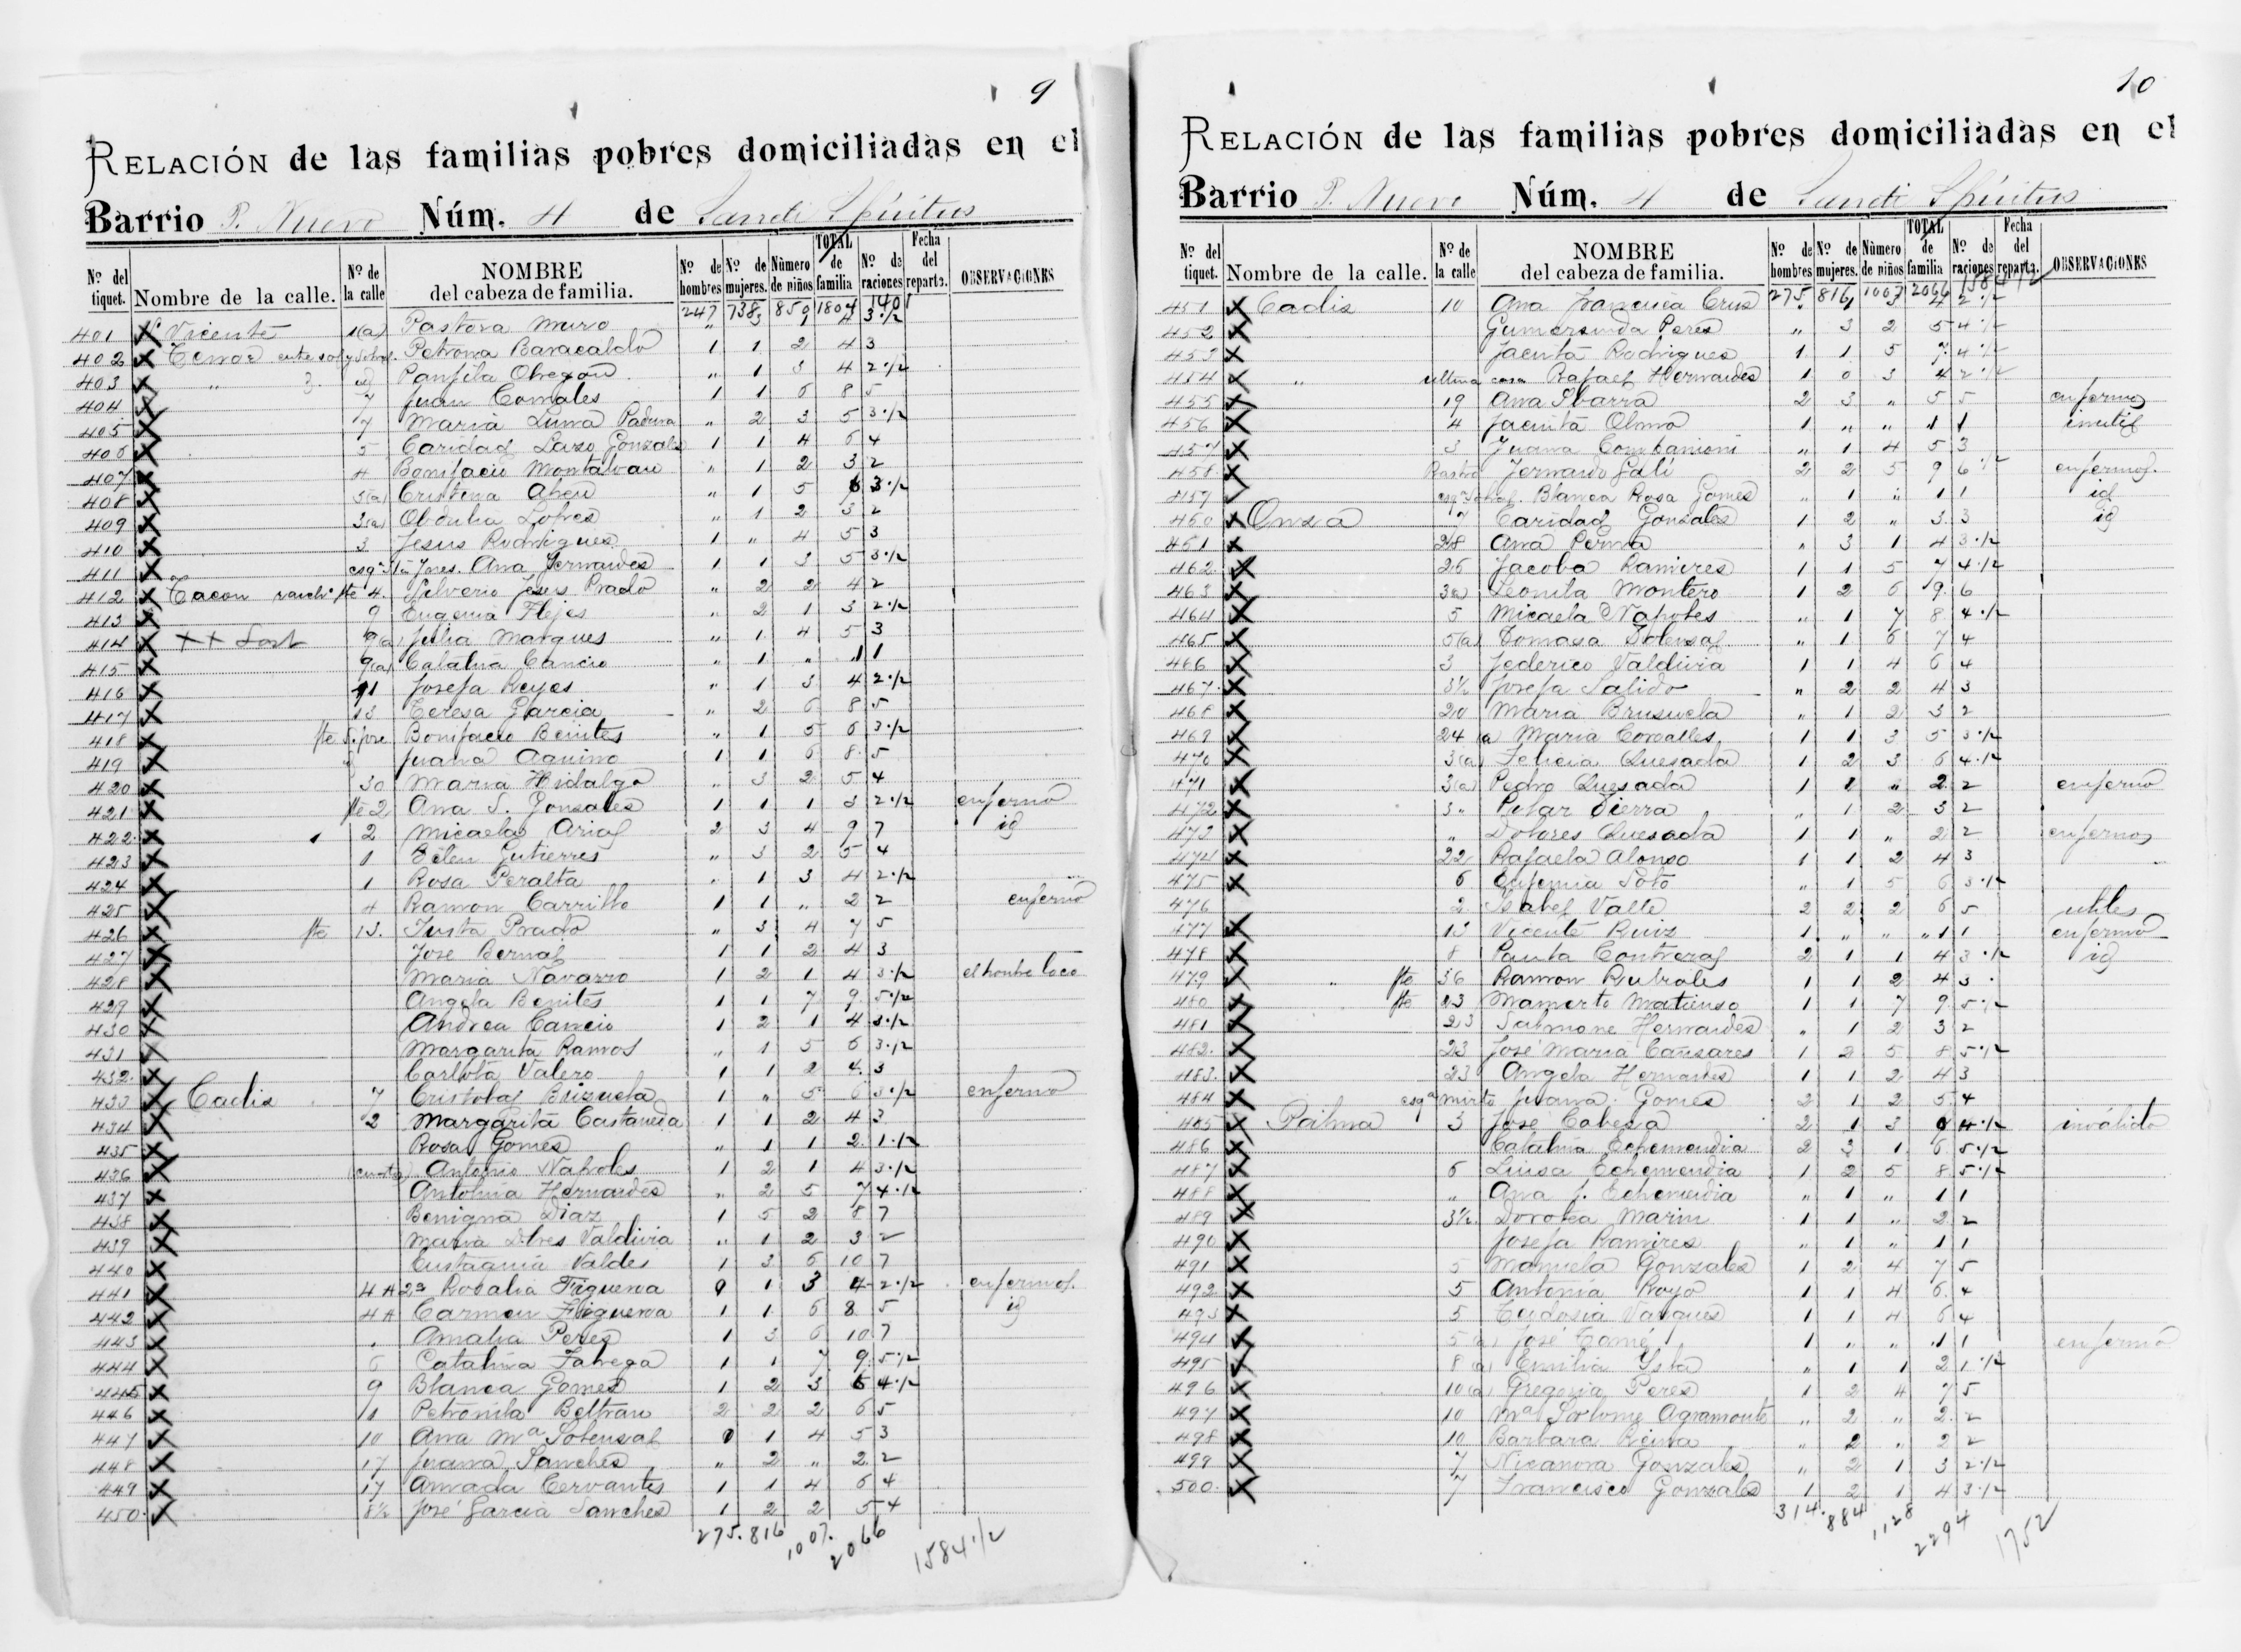 9
RELACIÓN de las familias pobres domiciliadas en el
Barrio P. Nuevo Núm. 4 de Sancti Spíritus
Nº del tiquet. Nombre de la calle. Nº de la calle NOMBRE del cabeza de familia. Nº de hombres Nº de mujeres. Número de niños TOTAL de familia Nº de raciones Fecha del reparto. OBSERVACIONES
247 738 859 1804 1401
401 X Sn Vicente 1(a) Pastora Muro „ 3 1 4 3·1/2
402 X entre sol y Petrona Baracaldo 1 1 2 4 3
403 X „ id Panfila Obregon „ 1 3 4 2·1/2
404 X Juan 1 1 6 8 5
405 X 7 Maria Luna Padina „ 2 3 5 3·1/2
406 X 5 Caridad Lazo Gonzales 1 1 4 6 4
407 X 4 Bonifacio Montalvan „ 1 2 3 2
408 X 3(a) Cristina Abreu „ 1 5 6 3·1/2
409 X 3(a) Obdulia Lopes „ 1 2 3 2
410 X 3 Jesus Rodrigues 1 „ 4 5 3
411 X esqª Ana Fernandes 1 1 3 5 3·1/2
412 X Tacon fte 4. Silverio Jesus Prado „ 2 2 4 2
413 X 9 Eugenia „ 2 1 3 2·1/2
414 X XX Lost 9(a) Julia Marques „ 1 4 5 3
415 X 9(a) Catalina Cancio „ 1 „ 1 1
416 X 11 Josefa Reyes „ 1 3 4 2·1/2
417 X 13 Teresa Garcia „ 2 6 8 5
418 X fte S. jose Bonifacio Benites „ 1 5 6 3·1/2
419 X Juana Aquino 1 1 6 8 5
420 X 30 Maria Hidalgo „ 3 2 5 4
421 X fte 2 Ana S. Gonzales 1 1 1 3 2·1/2 enfermo
422 X 2 Micaela Arias 2 3 4 9 7 id
423 X 1 Belen Gutierres „ 3 2 5 4
424 X 1 Rosa Peralta „ 1 3 4 2·1/2
425 X 4 Ramon Carrillo 1 1 „ 2 2 enfermo
426 X fte 13. Justa Prado „ 3 4 7 5
427 X Jose Bernal 1 1 2 4 3
428 X Maria Navarro 1 2 1 4 3·1/2 el hombre loco
429 X Angela Benites 1 1 7 9 5·1/2
430 X Andrea Cancio 1 2 1 4 3·1/2
431 X Margarita Ramos „ 1 5 6 3·1/2
432 X Carlota Valero 1 1 2 4 3
433 X Cadis 7 Cristobal Brizuela 1 „ 5 6 3·1/2 enfermo
434 X 2 Margarita Castaneda 1 1 2 4 3
435 X Rosa Gomes „ 1 1 2 1·1/2
436 X Antonio Napoles 1 2 1 4 3·1/2
437 X Antonia Hernandes „ 2 5 7 4·1/2
438 X Benigna Diaz 1 5 2 8 7
439 X Maria Dlres Valdivia „ 1 2 3 2
440 X Eustaquia Valdes 1 3 6 10 7
441 X 4 A 2ª Rosalia Figueroa 0 1 3 4 2·1/2 enfermos.
442 X 4 A Carmen Figueroa 1 1 6 8 5 id
443 X „ Amalia Peres 1 3 6 10 7
444 X 6 Catalina Fabrega 1 1 7 9 5·1/2
445 X 9 Blanca Gomes 1 2 3 6 4·1/2
446 X 11 Petronila Beltran 2 2 2 6 5
447 X 10 Ana Mª Sotensal 0 1 4 5 3
448 X 17 Juana Sanches „ 2 „ 2 2
449 X 17 Amada Cervantes 1 1 4 6 4
450 X 8½ José Garcia Sanches 1 2 2 5 4
275. 816 1007. 2066 1584·1/2
10
RELACIÓN de las familias pobres domiciliadas en el
Barrio P. Nuevo Núm. 4 de Sancti Spíritus
Nº del tiquet. Nombre de la calle. Nº de la calle NOMBRE del cabeza de familia. Nº de hombres Nº de mujeres. Número de niños TOTAL de familia Nº de raciones Fecha del reparto. OBSERVACIONES
275 816 1007 2066 1584 1/2
451 X Cadis 10 Ana Francisca Crus „ 1 3 4 2·1/2
452 X Gumersinda Peres „ 3 2 5 4·1/2
453 X Jacinta Rodrigues 1 1 5 7 4·1/2
454 X „ ultima casa Rafael Hernandes 1 0 3 4 2·1/2
455 X 19 Ana Ibarra 2 3 „ 5 5 enfermos
456 X 4 Jacinta Olmo 1 „ „ 1 1 inutil
457 X 3 Juana Companioni „ 1 4 5 3
458 X Rastro Fernando Gali 2 2 5 9 6·1/2 enfermos.
459 esqª Blanca Rosa Gomes „ 1 „ 1 1 id
460 X Onza 7 Caridad Gonsales 1 2 „ 3 3 id
461 X 28 Ana Perna „ 3 1 4 3·1/2
462 X 26 Jacoba Ramires 1 1 5 7 4·1/2
463 X 3(a) Leonila Montero 1 2 6 9 6
464 X 5 Micaela Napoles „ 1 7 8 4·1/2
465 X 5(a) Tomasa Sotensal „ 1 6 7 4
466 X 3 Federico Valdivia 1 1 4 6 4
467 X 3½ Josefa Salido „ 2 2 4 3
468 X 20 Maria Brusuela „ 1 2 3 2
469 X 24 (a) Maria 1 1 3 5 3·1/2
470 X 3(a) Felicia Quesada 1 2 3 6 4·1/2
471 X 3(a) Pedro Quesada 1 1 „ 2 2 enfermo
472 X 3„ Pilar Sierra „ 1 2 3 2
473 X „ Dolores Quesada 1 1 „ 2 2 enfermos
474 X 22 Rafaela Alonso 1 1 2 4 3
475 X 6 Eufemia Soto „ 1 5 6 3·1/2
476 2 Isabel Valle 2 2 2 6 5 utiles
477 X 13 Vicente Ruiz 1 „ „ 1 1 enfermo
478 X 8 Paula Contreras 2 1 1 4 3·1/2 id
479 X „ fte 36 Ramon Rubiales 1 1 2 4 3
480 X fte 23 Mamerto Matienso 1 1 7 9 5·1/2
481 X 23 Hernandes „ 1 2 3 2
482 X 23 José Maria Cañisares 1 2 5 8 5·1/2
483 X 23 Angela Hernandes 1 1 2 4 3
484 X esqª mirto Juana Gomes 2 1 2 5 4
485 X Palma 3 Jose Cabesa 2 1 3 6 4·1/2 inválido
486 X Catalina Echemendia 2 3 1 6 5·1/2
487 X 6 Luisa Echemendia 1 2 5 8 5·1/2
488 X „ Ana J. Echemendia „ 1 „ 1 1
489 X 3½ Dorotea Marin 1 1 „ 2 2
490 X Josefa Ramires „ 1 „ 1 1
491 X 5 Manuela Gonzales 1 2 4 7 5
492 X 5 Antonia Royo 1 1 4 6 4
493 X 5 Eudosia Vasques 1 1 4 6 4
494 X 5(a) José Tomé 1 „ „ 1 1 enfermo
495 X 8(a) Emilia Ysla „ 1 1 2 1·1/2
496 X 10(a) Gregoria Peres 1 2 4 7 5
497 X 10 Mª Agramonte „ 2 „ 2 2
498 X 10 Barbara Reina „ 2 „ 2 2
499 X 7 Nicanora Gonzales „ 2 1 3 2·1/2
500 X 7 Francisco Gonzales 1 2 1 4 3·1/2
314. 884 1128 2294 1752